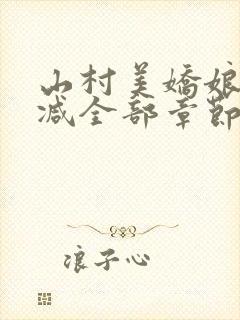 山村美嬌娘
减全部章節
浪子心